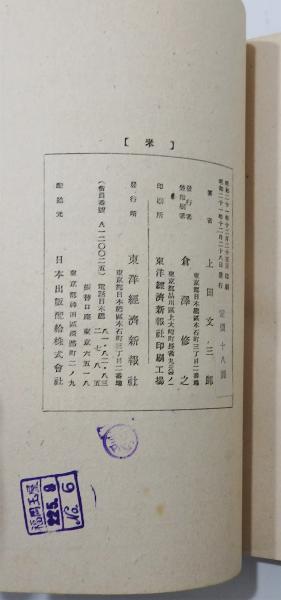 【米】
昭和二十一年十二月二十五日印刷
昭和二十一年十二月二十八日発行
定價 十八圓
著者 上田文三郎
東京都日本橋區本石町三丁目二番地
發行者
兼印刷者 倉澤修之
東京都品川區上大崎町長者丸
印刷所 東洋經濟新報社印刷工場
東京都日本橋區本石町三丁目二番地
發行所 東洋經濟新報社
電話日本橋
振替口座東京六五一八
(會員番號 A一二〇〇二五)
東京都神田區淡路町二ノ九
配給元 日本出版配給株式會社
福岡玉屋
22.5.8
No. 6